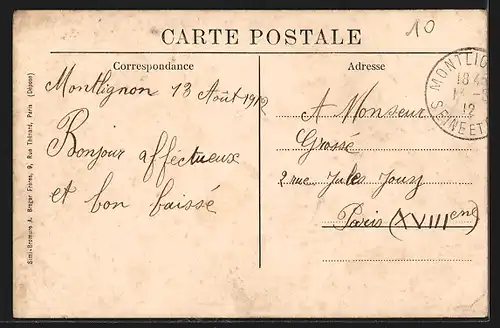 10
CARTE POSTALE
Correspondance
Adresse
Montlignon 13 Août 1912
Bonjour affectueux
et bon baissé
A Monseur
Grossé
2 rue Jules Jousy
Paris (XVIIIeme)
MONTLIG
18 45
12
SEINE ET
Simi-Bromure A. Breger Frères, 9, Rue Thénard, Paris (Déposé)